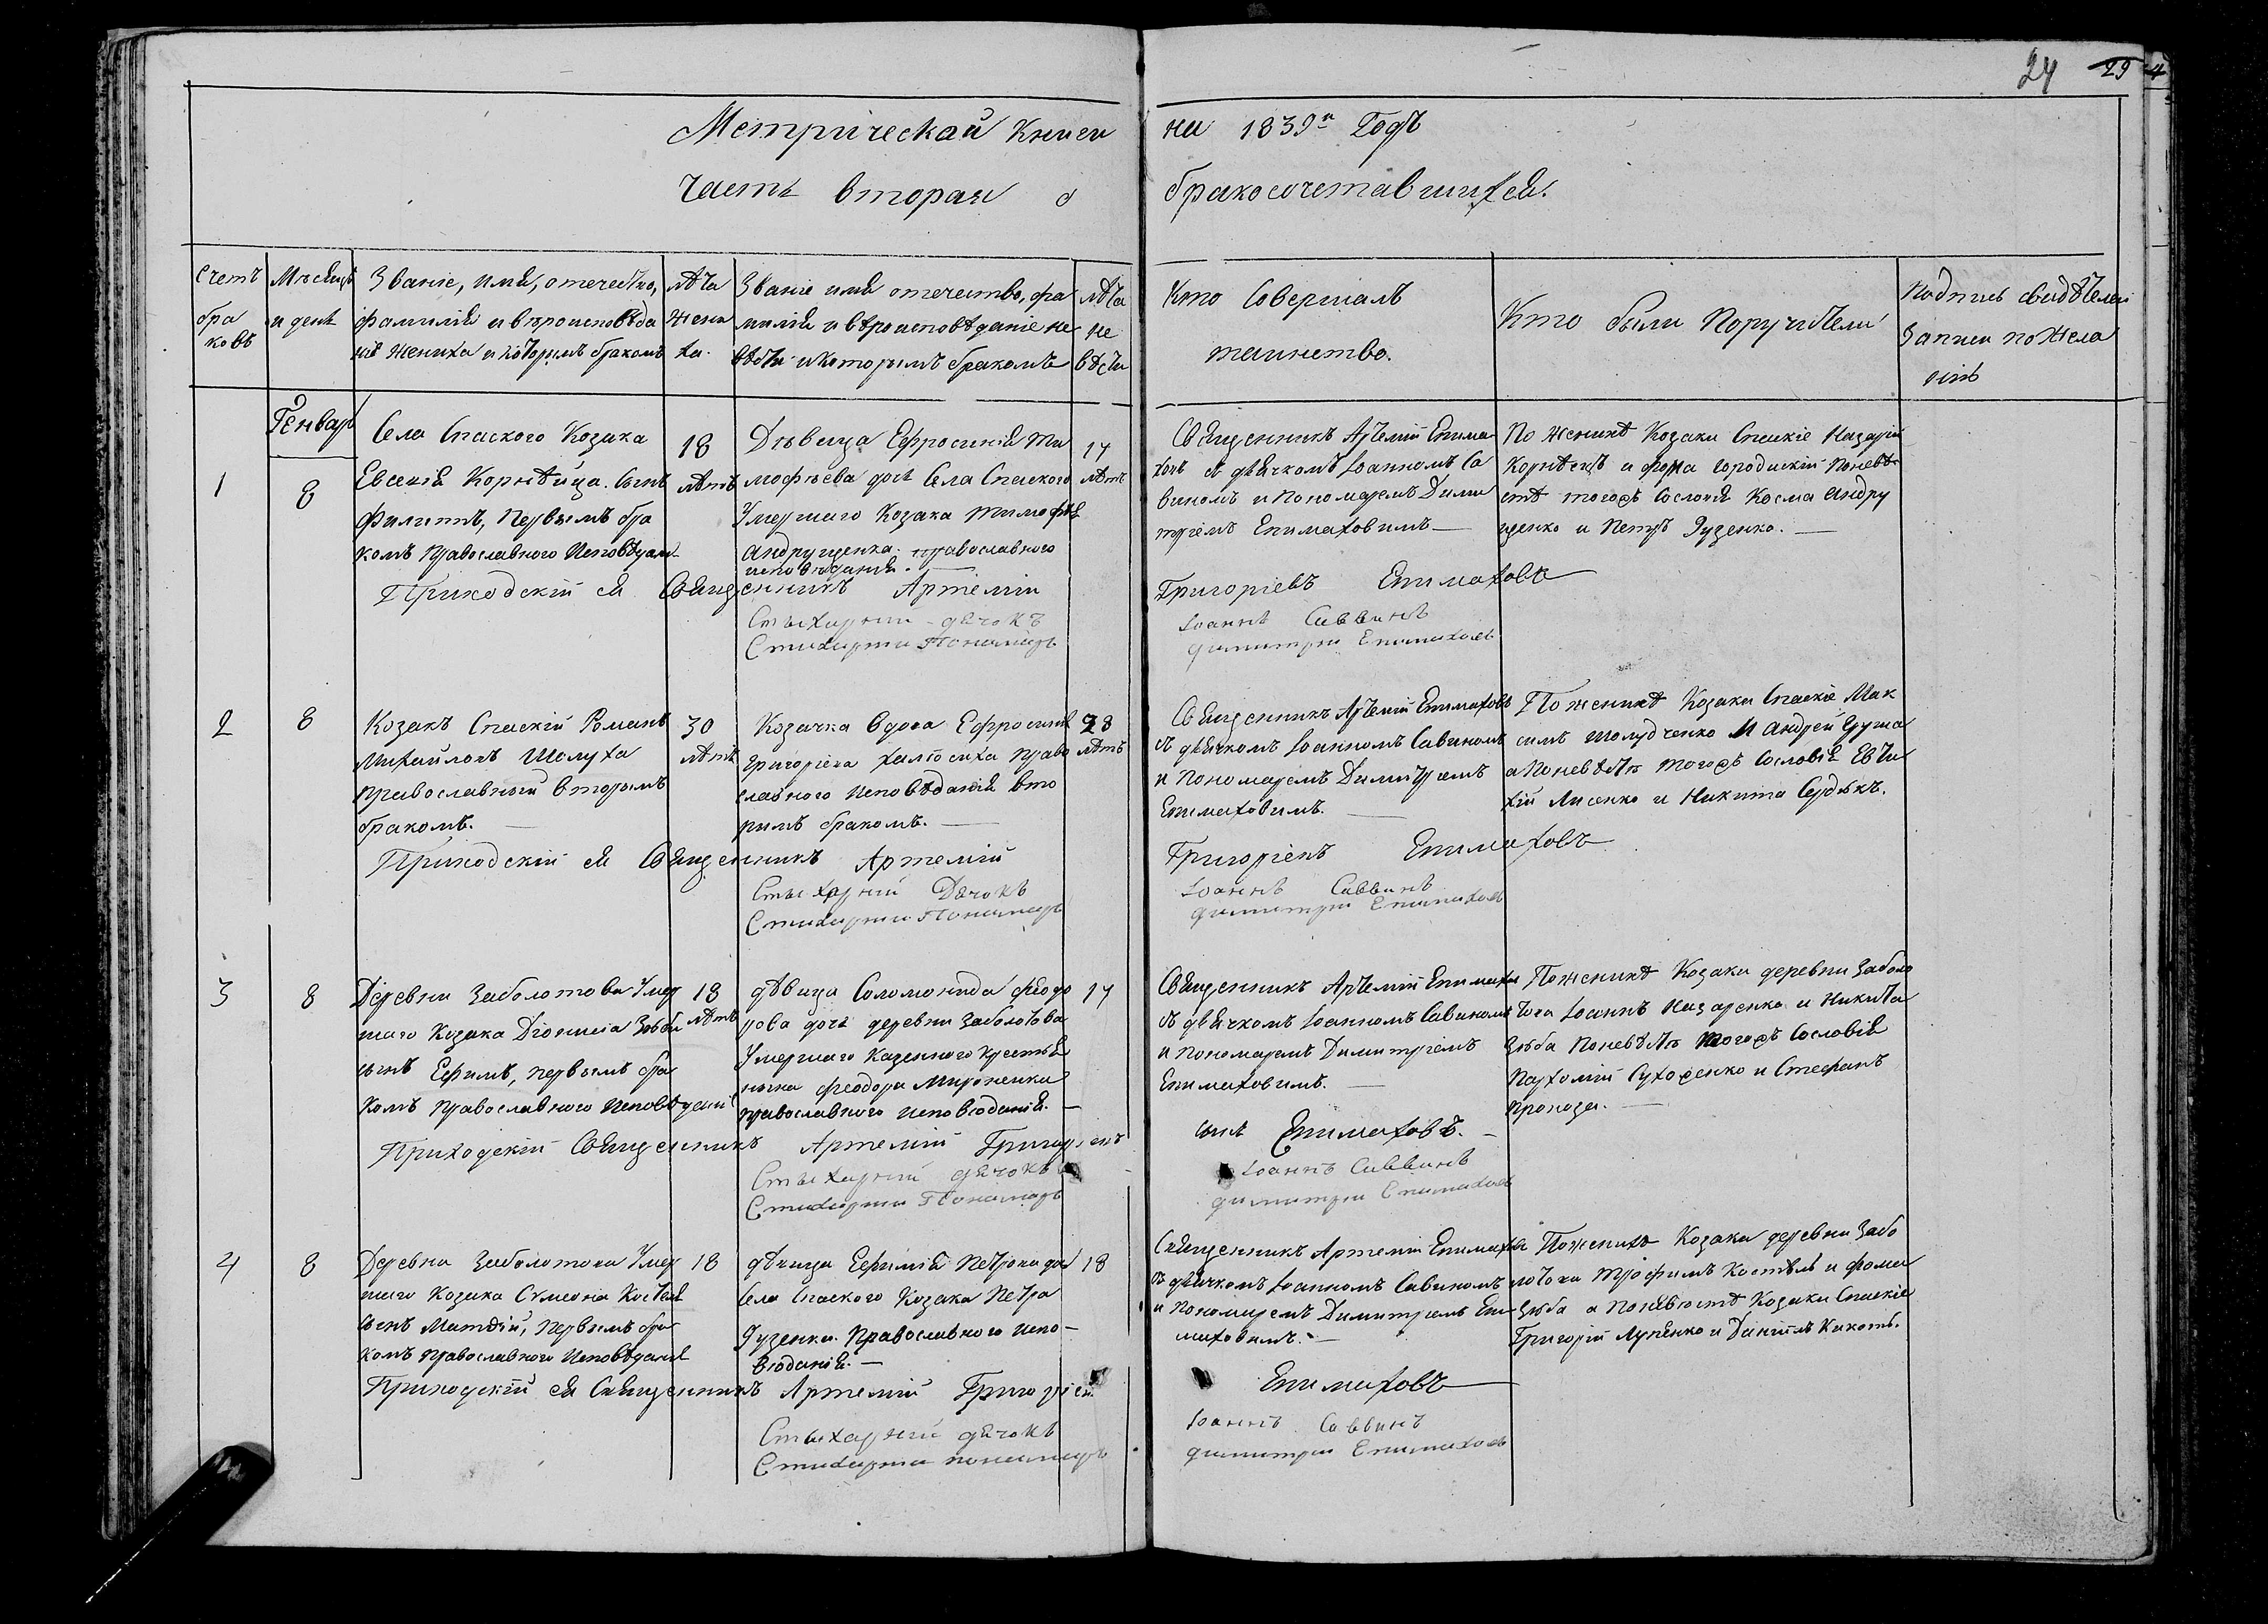 24 29 4
Метрической книги на 1839й Годъ
часть вторая о бракосочетавшихся.
Счетъ браковъ
Мѣсяцъ и день
Званіе, имя, отечество,
фамилія и вѣроисповѣда
ніе жениха и которымъ бракомъ
лѣта
жени
ха.
Званіе имя отечество, фа
милія и вѣроисповѣданіе не
вѣсты и которымъ бракомъ
лѣта
не
вѣсты
Кто совершалъ
таинство.
Кто были Поручители
Подпись свидѣтелей
Записи по жела
нію
Генварь
1
8
Села Спаского Козака
Евсевія Корнѣйца. Сынъ
Филиппъ, Первымъ бра
комъ Православного Исповѣдан
18
лѣтъ
Дѣвица Ефросинія Ти
мофѣева дочь Села Спаского
Умершаго Козака Тимофѣя
Андрущенка. православного
исповѣданія.
17
лѣтъ
Священникъ Артемій Епима
ховъ съ дьячкомъ Іоанномъ Са
виномъ и Пономаремъ Дими
тріемъ Епимаховимъ
По женихѣ Козаки Спаскіе Назарій
Корнѣецъ и Фома Городискій Поневѣ
стѣ тогожъ Сословія Косма Андру
щенко и Петръ Гузенко.
Приходскій ся Священникъ Артемій Григоріевъ Епимаховъ
Стыхарний дячокъ Іоаннъ Саввинъ
Стихарни Пономарь Димитри Епимаховъ
2
8
Козакъ Спаскій Романъ
Михайловъ Шолуха
православный вторымъ
бракомъ.
30
лѣтъ
Козачка Вдова Ефросинія
Григоріева православного Исповѣданія вто
римъ бракомъ.
28
лѣтъ
Священникъ Артемій Епимаховъ
съ дьячкомъ Іоанномъ Савиномъ
и Пономаремъ Димитріемъ
Епимаховимъ.
По женихѣ Козаки Спаскіе Мак
симъ Шолудченко и Андрей
а Поневѣстѣ тогожъ Сословія Евти
хій Лисенко и Никита Сердюкъ.
Приходскій ся Священникъ Артемій Григоріевъ Епимаховъ
Стыхарний Дячокъ Іоаннъ Саввинъ
Стихарни Пономарь Димитри Епимаховъ
3
8
Деревни Заболотова Умер
шаго Козака Діонисія Зюбы
сынъ Ефимъ, первымъ бра
комъ православного Исповѣданія
18
лѣтъ
дѣвица Соломонида Феодо
рова дочь деревни Заболотова
Умершаго Казенного крестья
нина Феодора Мироненка
православного исповюданія.
17
Священникъ Артемій Епимаховъ
съ дьячкомъ Іоанномъ Савиномъ
и Пономаремъ Димитріемъ
Епимаховимъ.
По женихѣ Козаки деревни Заболо
това Іоаннъ Назаренко и Никита
Зюба Поневѣстѣ тогожъ Сословія
Пархомій Сухоженко и Стефанъ
Прохода.
Приходскій Священникъ Артемій Григоріевъ сынъ Епимаховъ.
Стыхарний дячокъ Іоаннъ Саввинъ
Стихарни Пономарь Димитри Епимаховъ
4
8
Деревни Заболотова Умер
шаго Козака Сѵмеона Костеля
сынъ Матѳій, Первымъ бра
комъ православного Исповѣданія
18
дѣвица Ефимія Петрова дочь
Села Спаского Козака Петра
Гузенка. Православного испо-
вюданія.
18
Священникъ Артемій Епимаховъ
съ дьячкомъ Іоанномъ Савиномъ
и Пономаремъ Димитріемъ Епи
маховимъ.
По женихѣ Козаки деревни Забо
лотова Трофимъ Костѣль и Фома
Зюба а Поневюстѣ Козаки Спаскіе
Григорій Луценко и Даніилъ Кихоть.
Приходскій ся Священникъ Артемій Григоріевъ Епимаховъ
Стыхарний дячокъ Іоаннъ Саввинъ
Стихарни пономарь Димитри Епимаховъ